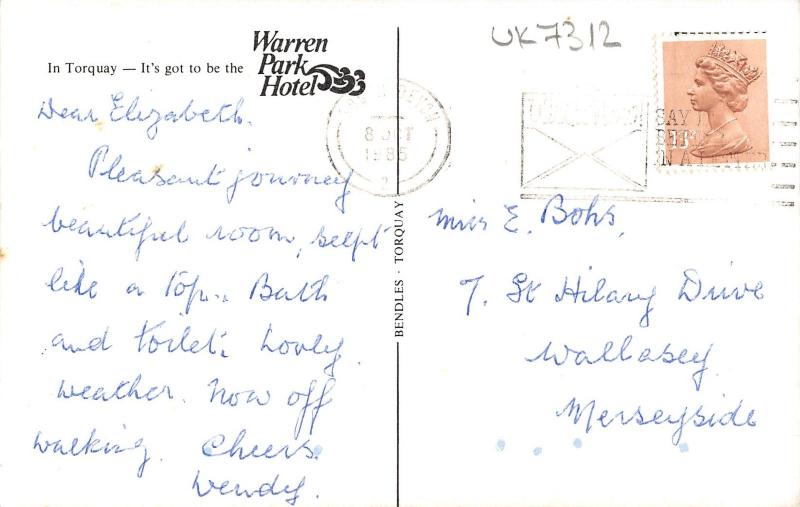 UK7312
In Torquay — It's got to be the
Warren
Park
Hotel
Dear Elizabeth.
Pleasant journey
beautiful room, selpt
like a top.. Bath
and toilet. Lovely
weather. Now off
walking. Cheers.
Wendy.
BENDLES · TORQUAY
8 OCT
1985
2
SAY
IN A
13
Miss E. Bohs,
7. St Hilary Drive
Wallasey
Merseyside